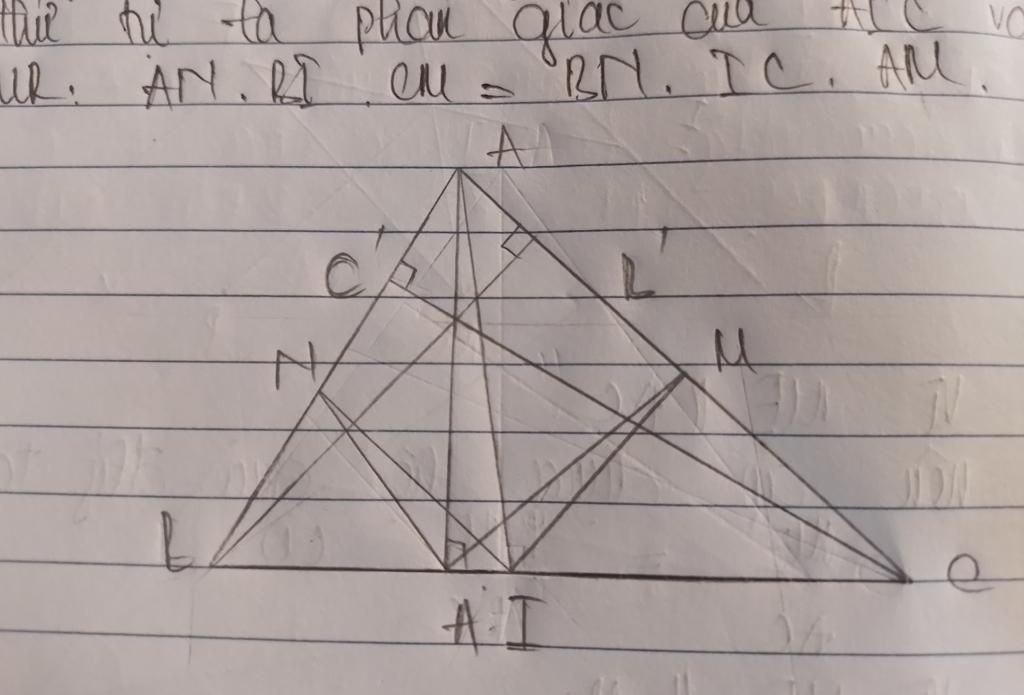 thứ tự là phân giác của AIC
AN. BI. CM = BN. IC. AM.
A
C'
B'
N
M
B
C
A' I